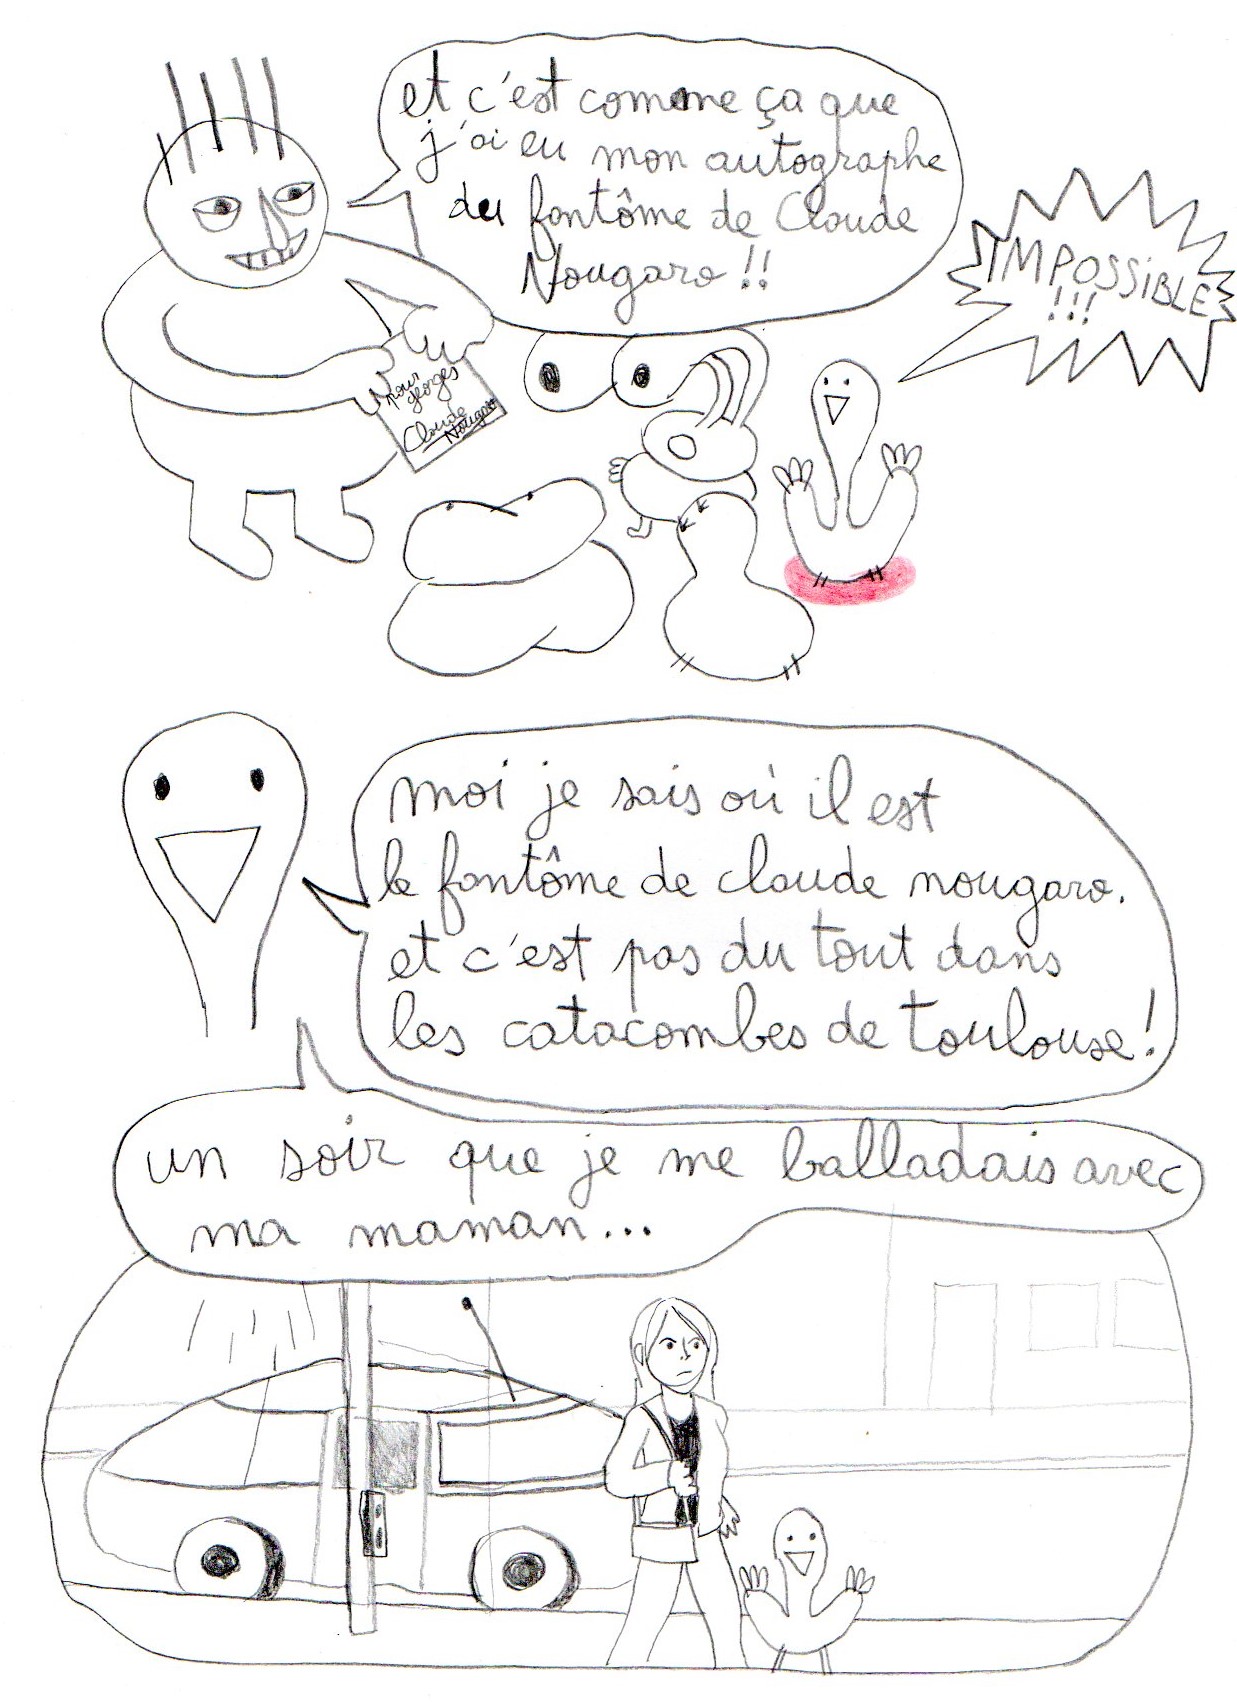 et c'est comme ça que
j'ai eu mon autographe
du fantôme de Claude
Nougaro !!
IMPOSSiBLE
!!!
pour
georges
Claude
Nougaro
moi je sais où il est
le fantôme de claude nougaro.
et c'est pas du tout dans
les catacombes de toulouse !
un soir que je me balladais avec
ma maman...